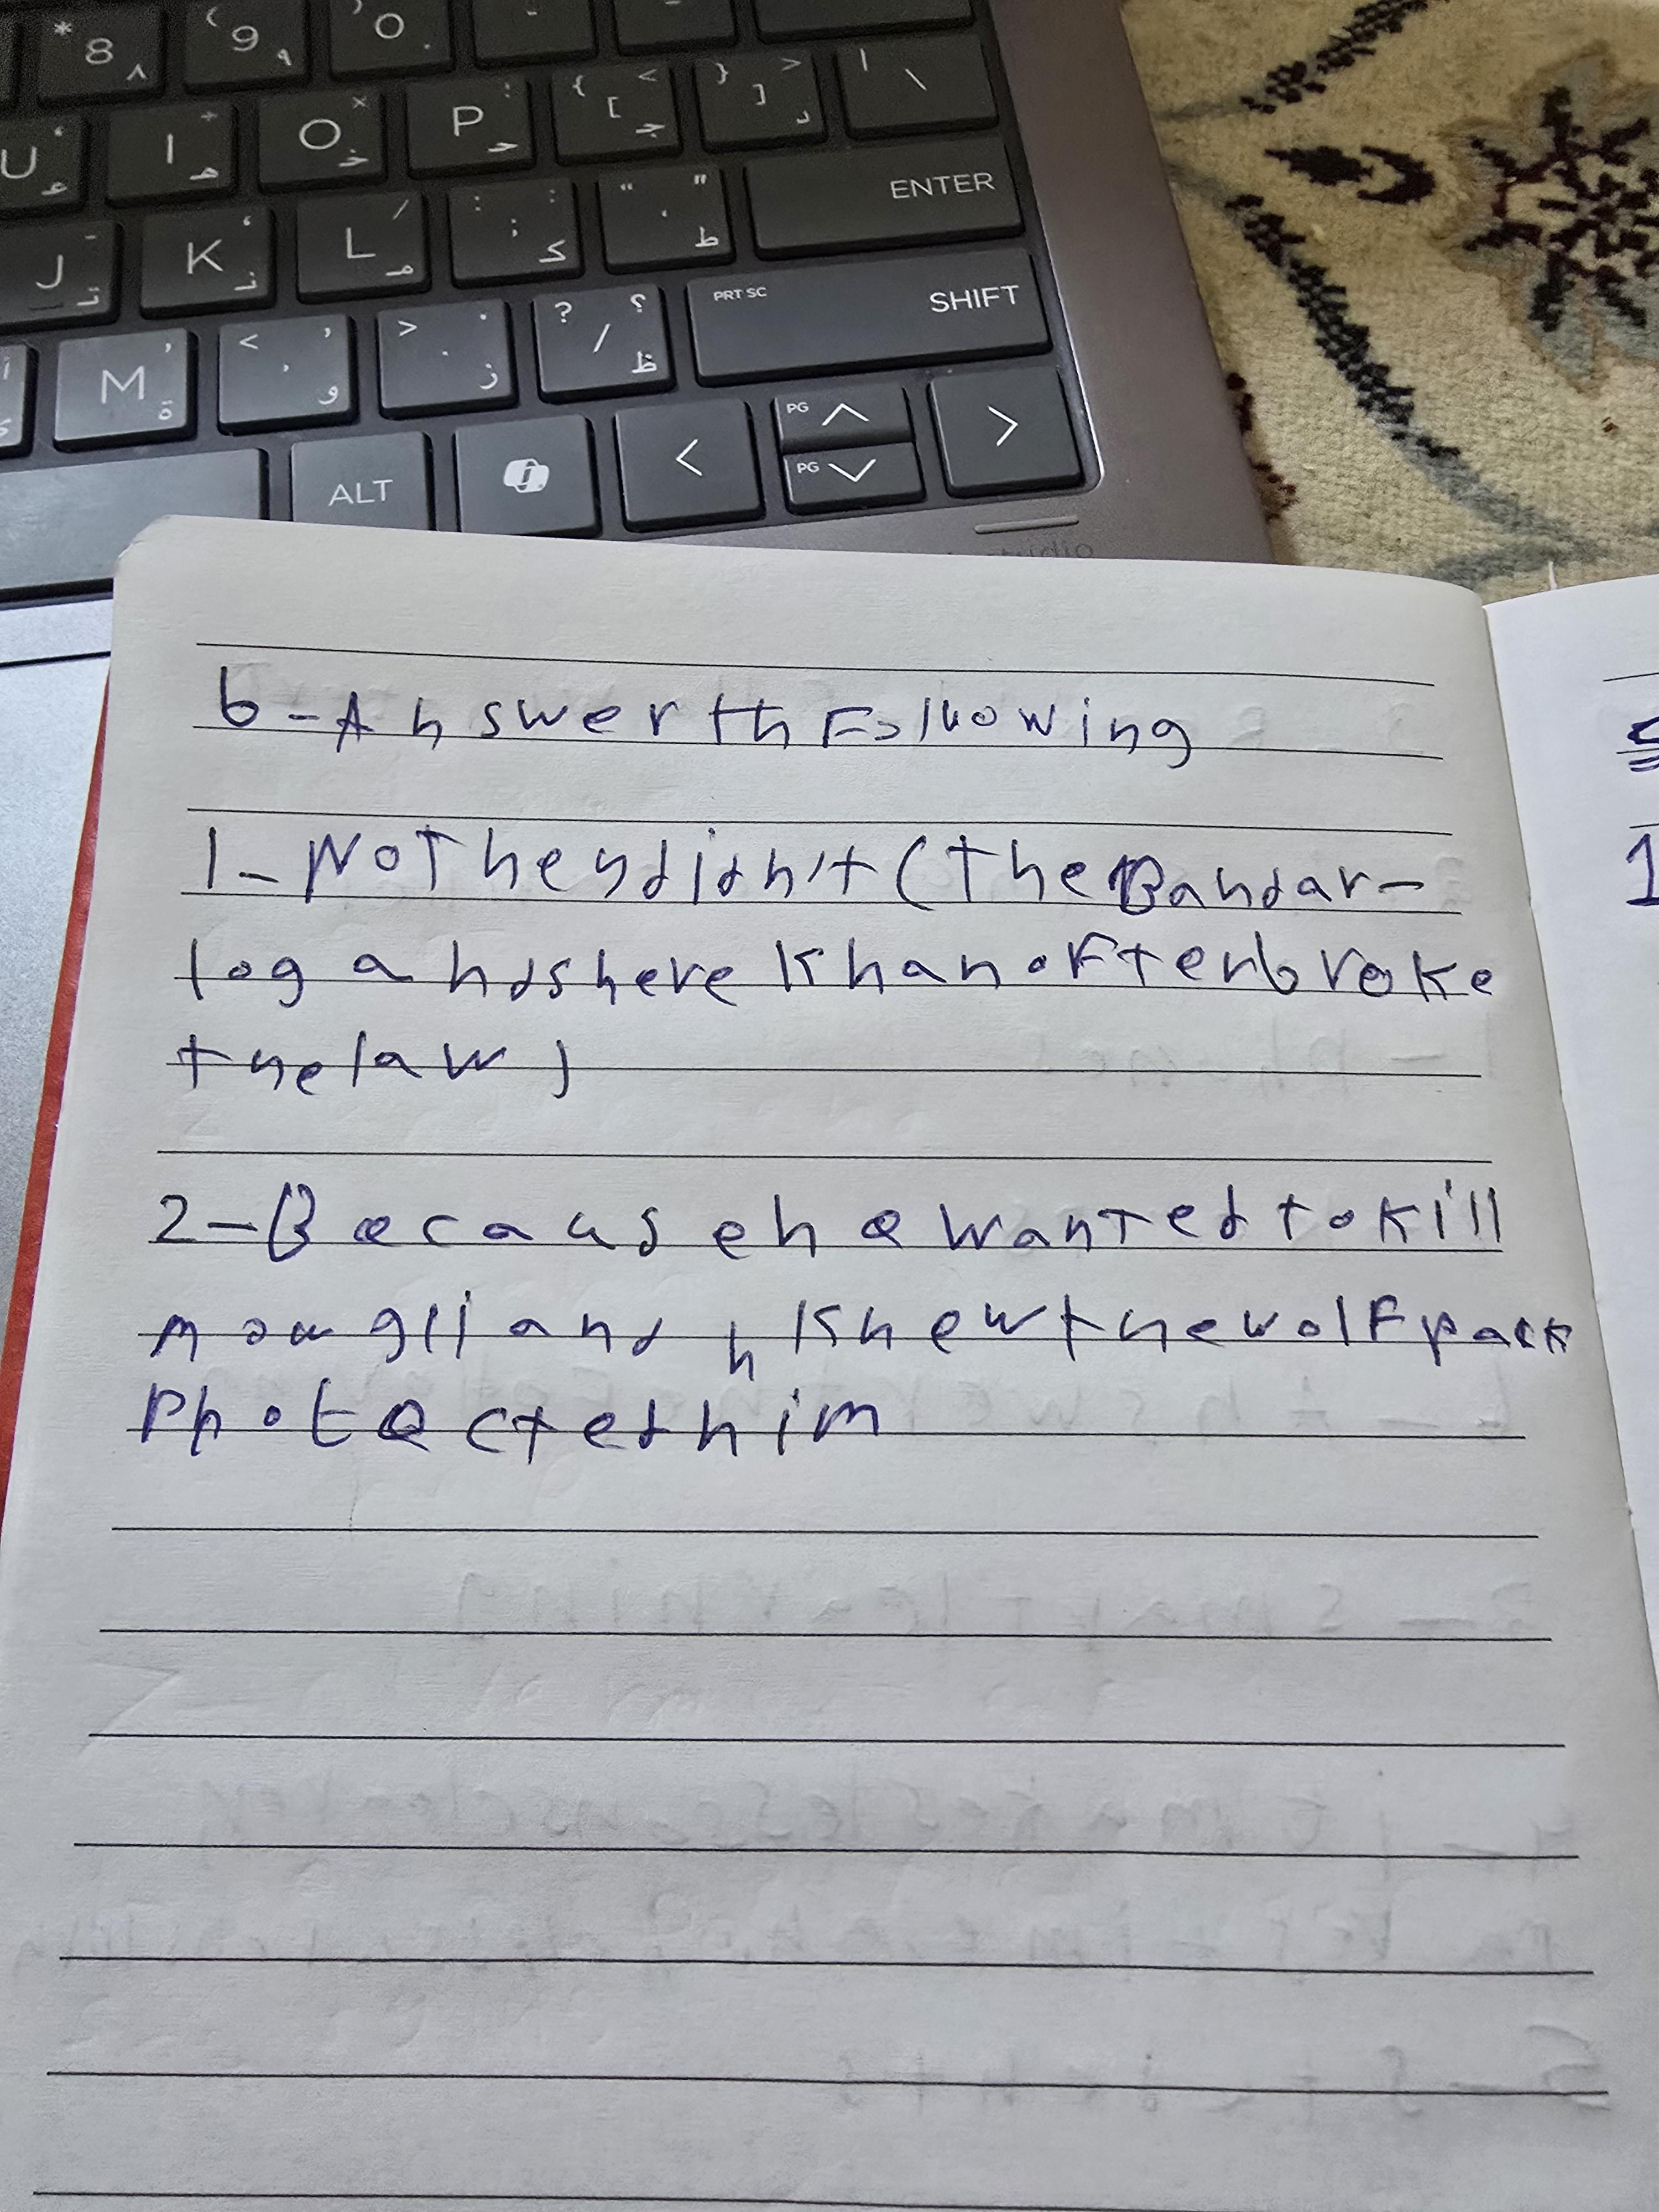 * 8 ٨ ( 9 ٩ ) 0 .
U ع I ه O خ P ح { [ < ج } ] > د | \
J ت K ن L م : ; ك " ' ط ENTER
M ة < , و > . ز ? / ؟ ظ PRT SC SHIFT
ALT < PG PG >
studio
6-Answer th Following
1- No They didn't (the Bandar-
log and shere Khan often broke
the law)
2-Because he wanted to kill
mowgli and h knew the wolf pack
Photected him
1